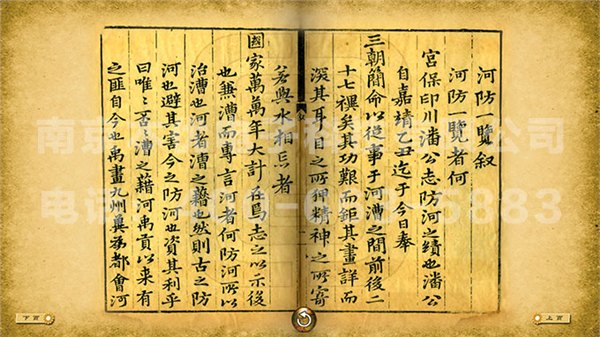 河防一覽叙
河防一覽者何
宮保印川潘公志防河之績也潘公
自嘉靖乙丑迄于今日奉
三朝簡命以從事于河漕之間前後二
十七禩矣其功艱而鉅其畫詳而
深其耳目之所狎精神之所寄
若與水相忘者
國家萬萬年大計在焉志之以示後
也兼漕而專言河者何防河所以
治漕也河者漕之藉也然則古之防
河也避其害今之防河也資其利乎
曰唯〻否〻漕之藉河禹貢以來有
之匪自今也禹畫九州冀為都會河
南京 公司
电话 5883
下頁
上頁